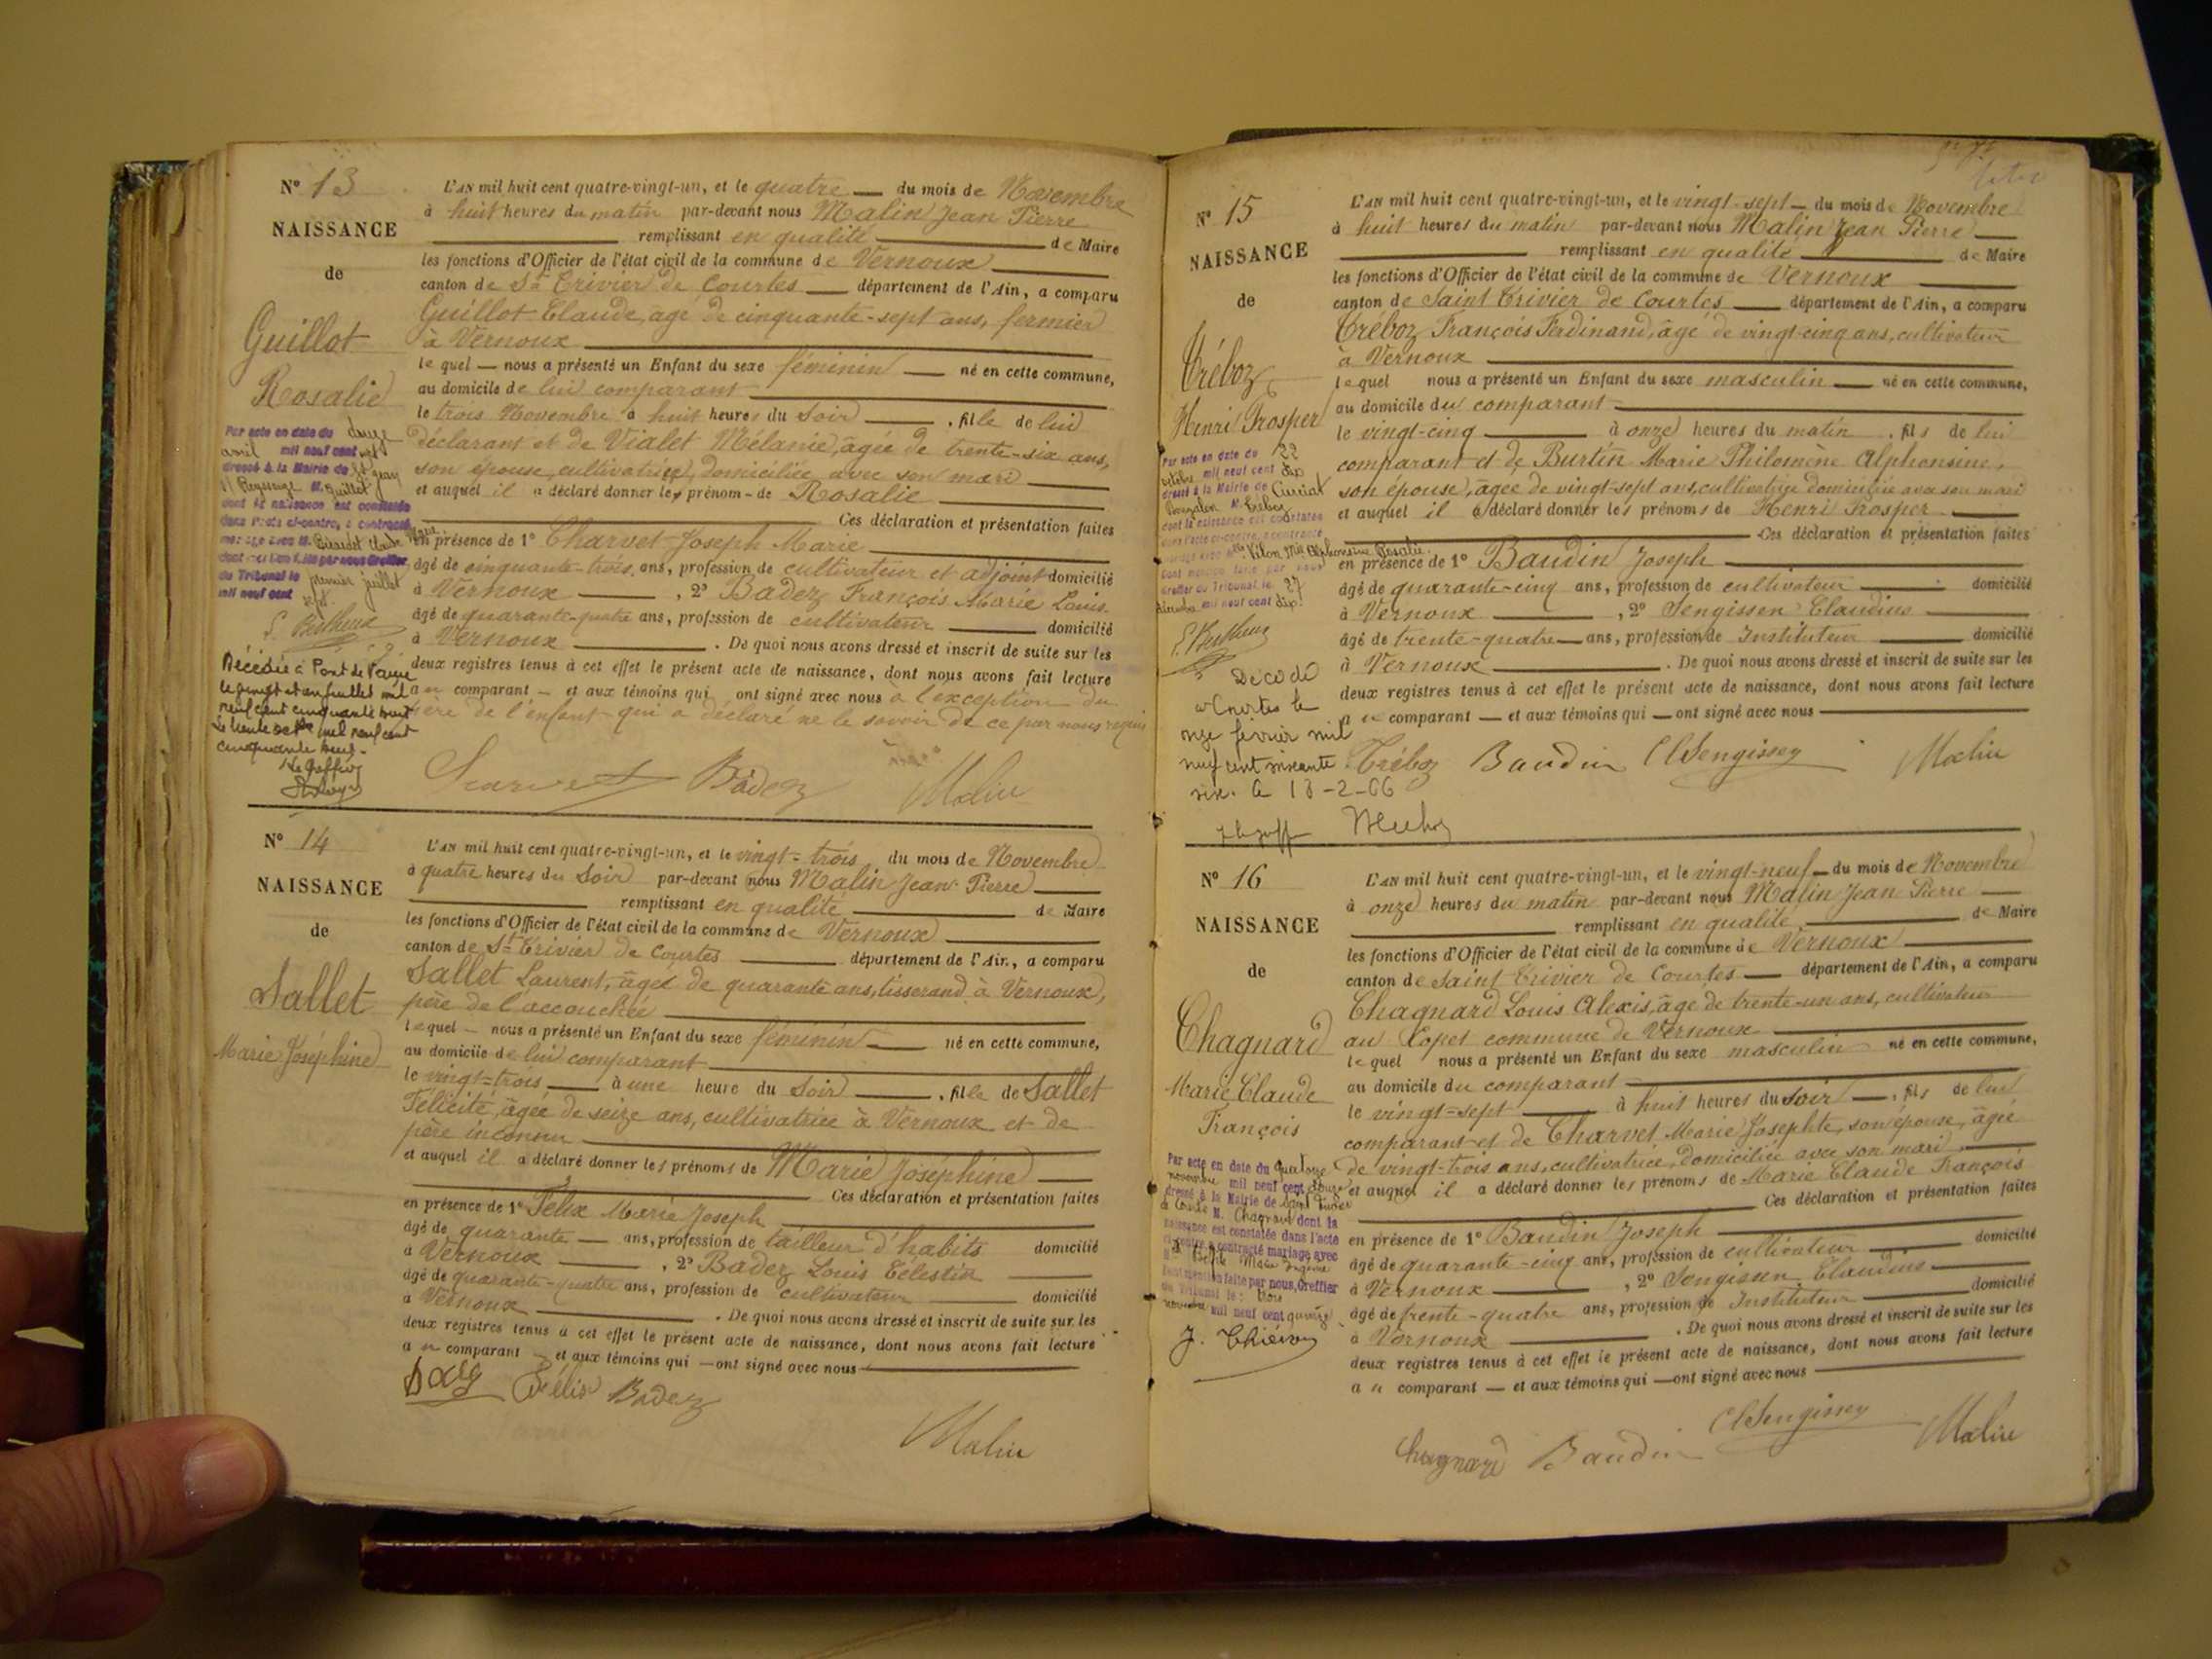 N° 13
NAISSANCE
de
Guillot
Rosalie
Par acte en date du douze
avril mil neuf cent sept
dressé à la Mairie de St Jean
s/ Reyssouze M. Guillot
dont la naissance est constatée
dans l'acte ci-contre, a contracté
mariage avec M. Claude
dont mention faite par nous Greffier
du Tribunal le premier juillet
mil neuf cent sept.
Décédée à Pont de Vaux
le vingt et un juillet mil
neuf cent cinquante neuf
Le trente mil neuf cent
cinquante neuf.
Le Greffier
L'AN mil huit cent quatre-vingt-un, et le quatre — du mois de Novembre
à huit heures du matin par-devant nous Malin Jean Pierre
remplissant en qualité de Maire
les fonctions d'Officier de l'état civil de la commune de Vernoux
canton de St Trivier de Courtes — département de l'Ain, a comparu
Guillot Claude, âgé de cinquante-sept ans, fermier
à Vernoux
lequel — nous a présenté un Enfant du sexe féminin — né en cette commune,
au domicile de lui comparant
le trois Novembre à huit heures du soir — , fille de lui
déclarant et de Vialet Mélanie, âgée de trente-six ans,
son épouse, cultivatrice, domiciliée avec son mari
et auquel il a déclaré donner le prénom - de Rosalie
Ces déclaration et présentation faites
en présence de 1° Charvet Joseph Marie
âgé de cinquante-trois ans, profession de cultivateur et adjoint domicilié
à Vernoux — , 2° Badez François Marie Louis
âgé de quarante-quatre ans, profession de cultivateur — domicilié
à Vernoux — . De quoi nous avons dressé et inscrit de suite sur les
deux registres tenus à cet effet le présent acte de naissance, dont nous avons fait lecture
au comparant — et aux témoins qui ont signé avec nous à l'exception du
père de l'enfant qui a déclaré ne le savoir de ce par nous requis
Badez Malin
N° 14
NAISSANCE
de
Sallet
Marie Joséphine
L'AN mil huit cent quatre-vingt-un, et le vingt-trois du mois de Novembre
à quatre heures du soir par-devant nous Malin Jean Pierre
remplissant en qualité de Maire
les fonctions d'Officier de l'état civil de la commune de Vernoux
canton de St Trivier de Courtes — département de l'Ain, a comparu
Sallet Laurent, âgé de quarante ans, tisserand à Vernoux,
père de l'accouchée
lequel — nous a présenté un Enfant du sexe féminin — né en cette commune,
au domicile de lui comparant
le vingt-trois — à une heure du soir — , fille de Sallet
Félicité, âgée de seize ans, cultivatrice à Vernoux et de
père inconnu
et auquel il a déclaré donner les prénoms de Marie Joséphine
Ces déclaration et présentation faites
en présence de 1° Félix Marie Joseph
âgé de quarante — ans, profession de tailleur d'habits domicilié
à Vernoux — , 2° Badez Louis Célestin
âgé de quarante-quatre ans, profession de cultivateur — domicilié
à Vernoux — . De quoi nous avons dressé et inscrit de suite sur les
deux registres tenus à cet effet le présent acte de naissance, dont nous avons fait lecture
au comparant — et aux témoins qui — ont signé avec nous
Félix Badez
Malin
N° 15
NAISSANCE
de
Tréboz
Henri Prosper
Par acte en date du 22
octobre mil neuf cent dix
dressé à la Mairie de Curciat
Dongalon M. Tréboz
dont la naissance est constatée
dans l'acte ci-contre, a contracté
mariage avec Mlle Vélon Mie Alphonsine Rosalie.
dont mention faite par nous
Greffier du Tribunal le 27
décembre mil neuf cent dix.
Décédé
à Courtes le
onze février mil
neuf cent soixante
six. le 18-2-66
L'AN mil huit cent quatre-vingt-un, et le vingt-sept — du mois de Novembre
à huit heures du matin par-devant nous Malin Jean Pierre
remplissant en qualité de Maire
les fonctions d'Officier de l'état civil de la commune de Vernoux
canton de Saint Trivier de Courtes — département de l'Ain, a comparu
Tréboz François Ferdinand, âgé de vingt-cinq ans, cultivateur
à Vernoux
lequel nous a présenté un Enfant du sexe masculin — né en cette commune,
au domicile du comparant
le vingt-cinq — à onze heures du matin , fils de lui
comparant et de Burtin Marie Philomène Alphonsine,
son épouse, âgée de vingt-sept ans, cultivatrice domiciliée avec son mari
et auquel il a déclaré donner les prénoms de Henri Prosper
Ces déclaration et présentation faites
en présence de 1° Baudin Joseph
âgé de quarante-cinq ans, profession de cultivateur — domicilié
à Vernoux — , 2° Sengissen Claudius
âgé de trente-quatre — ans, profession de Instituteur — domicilié
à Vernoux — . De quoi nous avons dressé et inscrit de suite sur les
deux registres tenus à cet effet le présent acte de naissance, dont nous avons fait lecture
au comparant — et aux témoins qui — ont signé avec nous
Tréboz Baudin Cl Sengissen Malin
N° 16
NAISSANCE
de
Chagnard
Marie Claude
François
Par acte en date du quatorze
novembre mil neuf cent douze
dressé à la Mairie de Saint Trivier
de Courtes M. Chagnard dont la
naissance est constatée dans l'acte
ci-contre a contracté mariage avec
Marie
dont mention faite par nous, Greffier
du Tribunal le: trois
novembre mil neuf cent quinze
L'AN mil huit cent quatre-vingt-un, et le vingt-neuf — du mois de Novembre
à onze heures du matin par-devant nous Malin Jean Pierre
remplissant en qualité de Maire
les fonctions d'Officier de l'état civil de la commune de Vernoux
canton de Saint Trivier de Courtes — département de l'Ain, a comparu
Chagnard Louis Alexis, âgé de trente-un ans, cultivateur
au Copet commune de Vernoux
lequel nous a présenté un Enfant du sexe masculin né en cette commune,
au domicile du comparant
le vingt-sept — à huit heures du soir — , fils de lui
comparant et de Charvet Marie Josephte, son épouse, âgée
de vingt-trois ans, cultivatrice, domiciliée avec son mari
et auquel il a déclaré donner les prénoms de Marie Claude François
Ces déclaration et présentation faites
en présence de 1° Baudin Joseph
âgé de quarante-cinq ans, profession de cultivateur — domicilié
à Vernoux — , 2° Sengissen Claudius
âgé de trente-quatre ans, profession de Instituteur — domicilié
à Vernoux — . De quoi nous avons dressé et inscrit de suite sur les
deux registres tenus à cet effet le présent acte de naissance, dont nous avons fait lecture
au comparant — et aux témoins qui — ont signé avec nous
Chagnard Baudin Cl Sengissen Malin